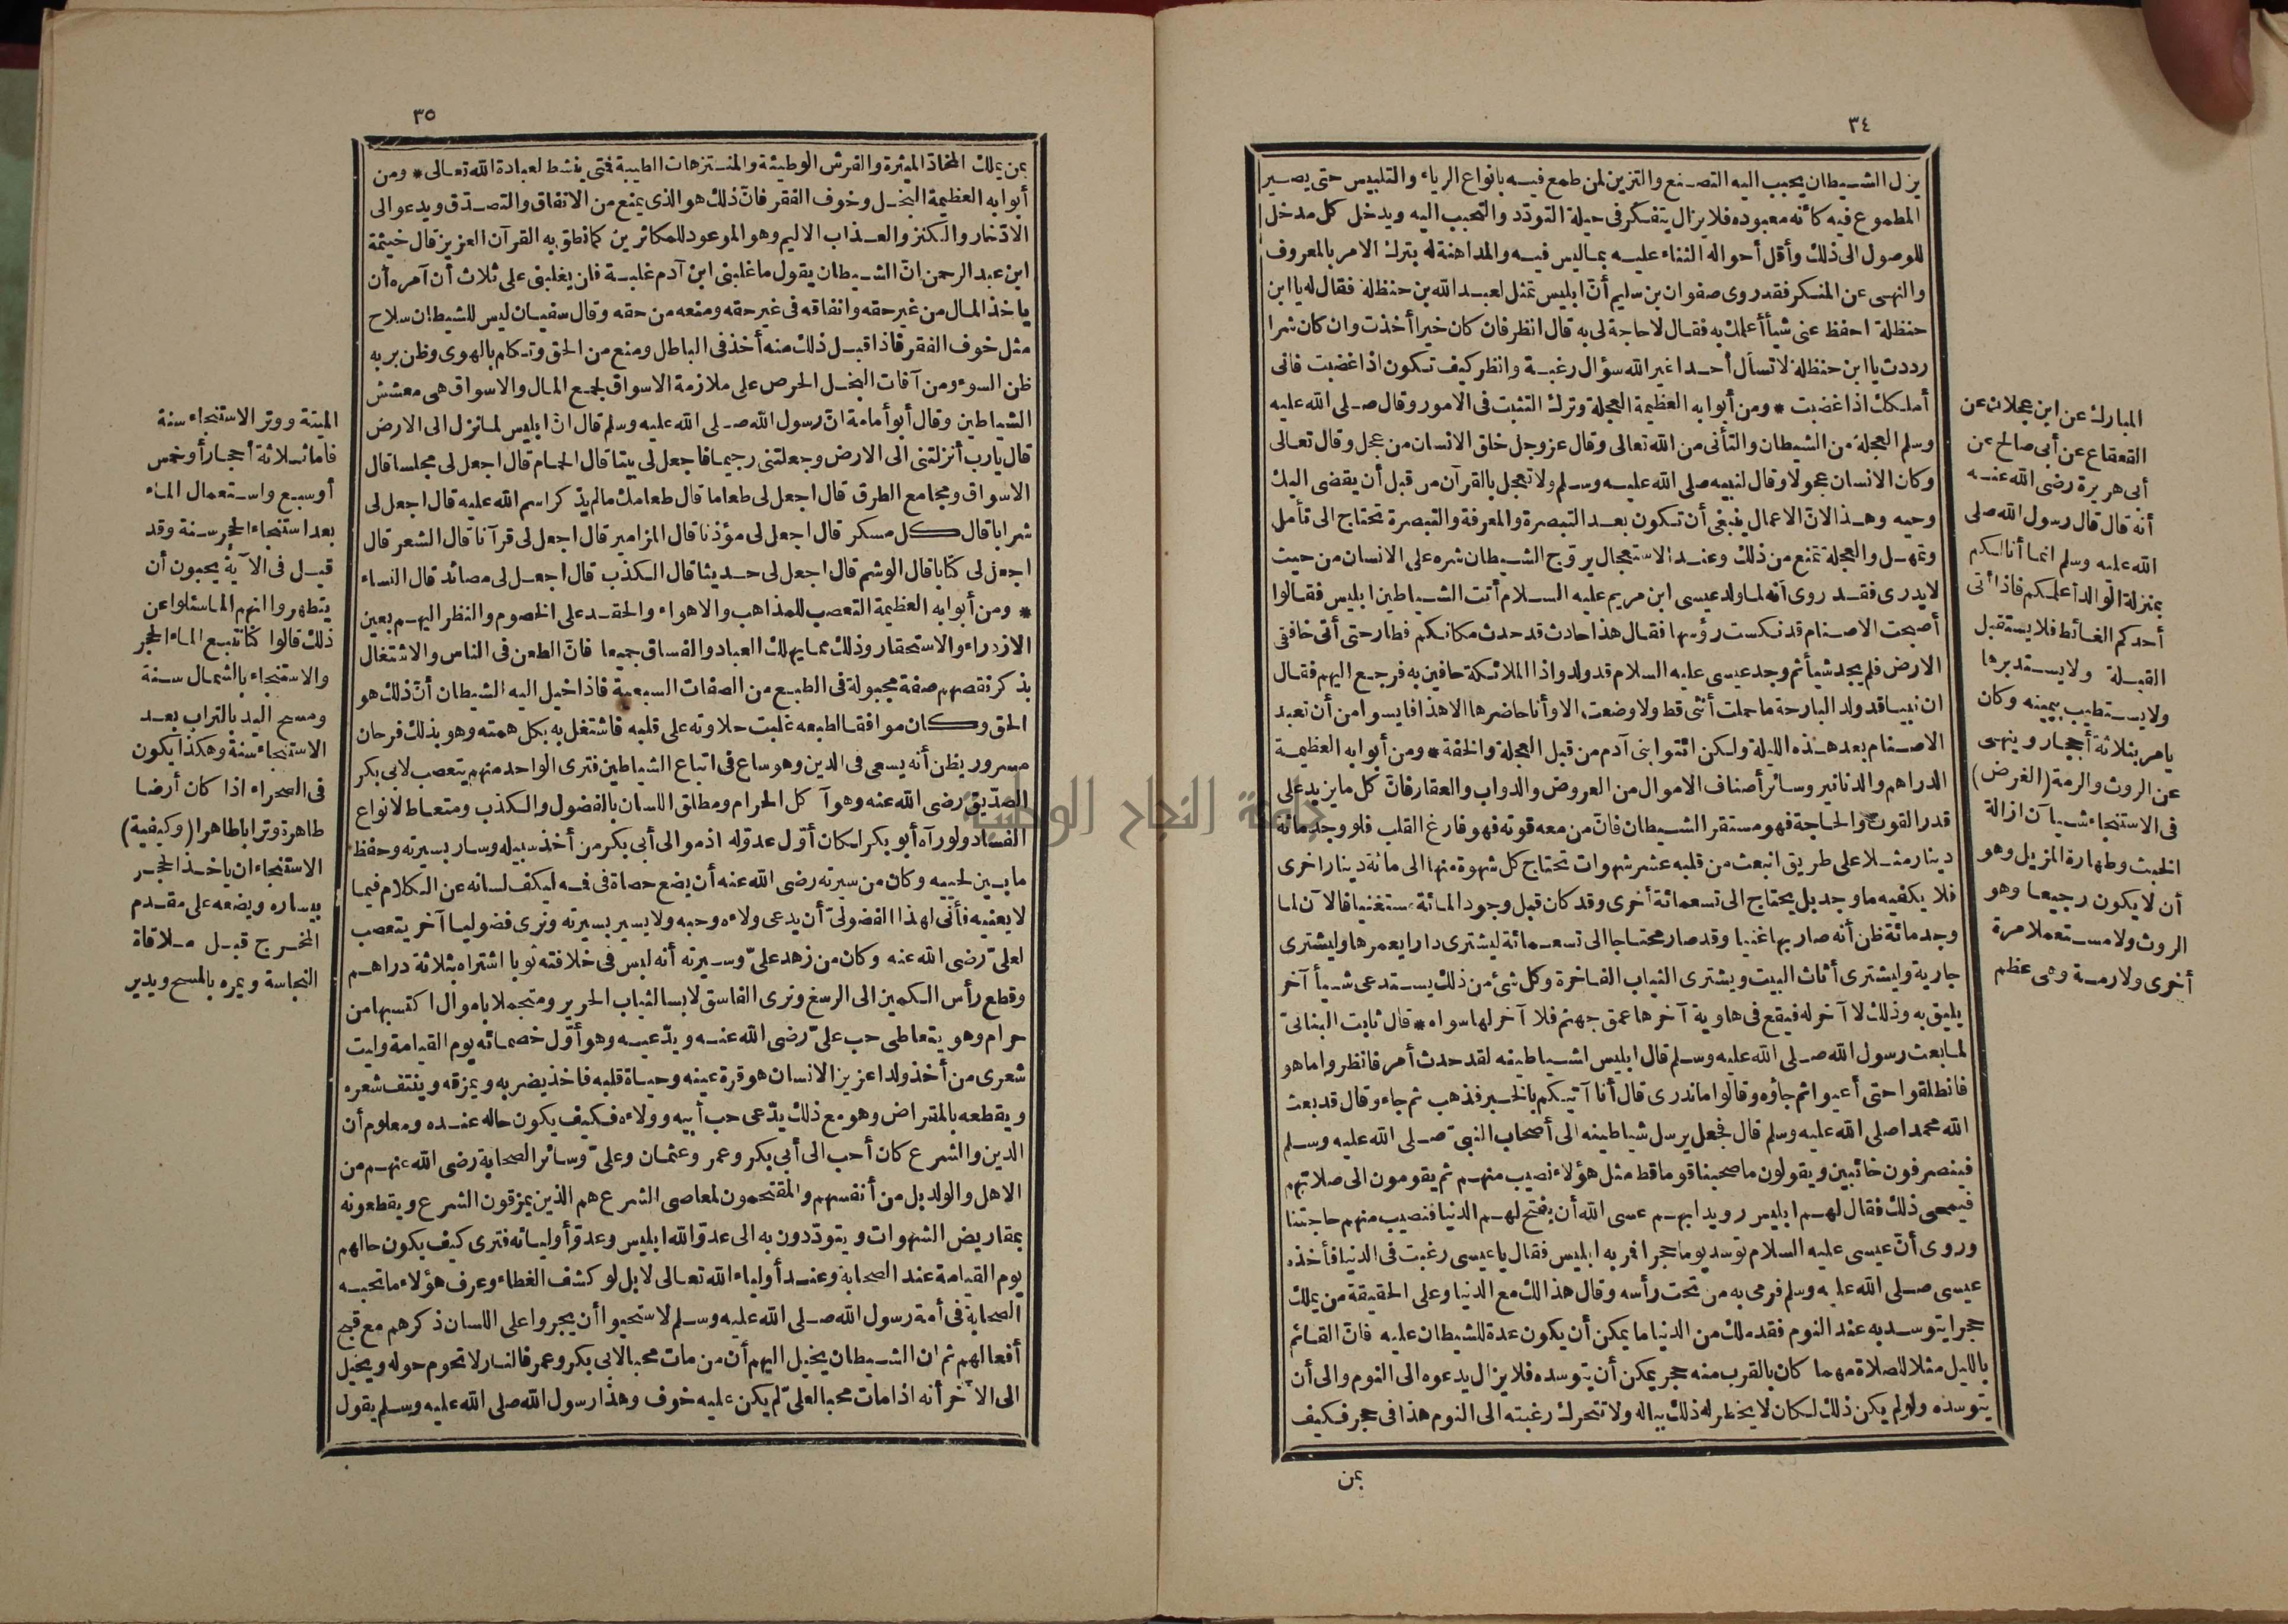 ٣٤
يزل الشيطان يحبب اليه التصنع والتزين لمن طمع فيه بانواع الرياء والتلبيس حتى يصير
المطموع فيه كأنه معبوده فلا يزال يتفكر فى حيلة التودّد والتحبب اليه ويدخل كل مدخل
للوصول الى ذلك وأقل أحواله الثناء عليه بما ليس فيه والمداهنة له بترك الامر بالمعروف
والنهى عن المنكر فقد روى صفوان بن سليم أنّ ابليس تمثل لعبد الله بن حنظلة فقال له يا ابن
حنظلة احفظ عنى شيأ أعلمك به فقال لا حاجة لى به قال انظر فان كان خيرا أخذت وان كان شرا
رددت يا ابن حنظلة لا تسأل أحدا غير الله سؤال رغبة وانظر كيف تكون اذا غضبت فانى
أملكك اذا غضبت * ومن أبوابه العظيمة العجلة وترك التثبت فى الامور وقال صلى الله عليه
وسلم العجلة من الشيطان والتأنى من الله تعالى وقال عز وجل خلق الانسان من عجل وقال تعالى
وكان الانسان عجولا وقال لنبيه صلى الله عليه وسلم ولا تعجل بالقرآن من قبل أن يقضى اليك
وحيه وهذا لانّ الاعمال ينبغى أن تكون بعد التبصرة والمعرفة والتبصرة تحتاج الى تأمل
وتمهل والعجلة تمنع من ذلك وعند الاستعجال يروّج الشيطان شره على الانسان من حيث
لا يدرى فقد روى أنه لما ولد عيسى ابن مريم عليه السلام أتت الشياطين ابليس فقالوا
أصبحت الاصنام قد نكست رؤسها فقال هذا حادث قد حدث مكانكم فطار حتى أتى خافقى
الارض فلم يجد شيأ ثم وجد عيسى عليه السلام قد ولد واذا الملائكة حافين به فرجع اليهم فقال
ان نبيا قد ولد البارحة ما حملت أنثى قط ولا وضعت الا وأنا حاضرها الا هذا فايسوا من أن تعبد
الاصنام بعد هذه الليلة ولكن ائتوا بنى آدم من قبل العجلة والخفة * ومن أبوابه العظيمة
الدراهم والدنانير وسائر أصناف الاموال من العروض والدواب والعقار فانّ كل ما يزيد على
قدر القوت والحاجة فهو مستقر الشيطان فانّ من معه قوته فهو فارغ القلب فلو وجد مائة
دينار مثلا على طريق انبعث من قلبه عشر شهوات تحتاج كل شهوة منها الى مائة دينار اخرى
فلا يكفيه ما وجد بل يحتاج الى تسعمائة أخرى وقد كان قبل وجود المائة مستغنيا فالآن لما
وجد مائة ظن أنه صار بها غنيا وقد صار محتاجا الى تسعمائة ليشترى دارا يعمرها وليشترى
جارية وليشترى أثاث البيت ويشترى الثياب الفاخرة وكل شئ من ذلك يستدعى شيأ آخر
يليق به وذلك لا آخر له فيقع فى هاوية آخرها عمق جهنم فلا آخر لها سواه * قال ثابت البنانىّ
لما بعث رسول الله صلى الله عليه وسلم قال ابليس لشياطينه لقد حدث أمر فانظروا ما هو
فانطلقوا حتى أعيوا ثم جاؤه وقالوا ما ندرى قال أنا آتيكم بالخبر فذهب ثم جاء وقال قد بعث
الله محمدا صلى الله عليه وسلم قال فجعل يرسل شياطينه الى أصحاب النبىّ صلى الله عليه وسلم
فينصرفون خائبين ويقولون ما صحبنا قوما قط مثل هؤلاء نصيب منهم ثم يقومون الى صلاتهم
فيمحى ذلك فقال لهم ابليس رويدا بهم عسى الله أن يفتح لهم الدنيا فنصيب منهم حاجتنا
وروى أنّ عيسى عليه السلام توسد يوما حجرا فمر به ابليس فقال يا عيسى رغبت فى الدنيا فأخذه
عيسى صلى الله عليه وسلم فرمى به من تحت رأسه وقال هذا لك مع الدنيا وعلى الحقيقة من يملك
حجرا يتوسد به عند النوم فقد ملك من الدنيا ما يمكن أن يكون عدة للشيطان عليه فانّ القائم
بالليل مثلا للصلاة مهما كان بالقرب منه حجر يمكن أن يتوسده فلا يزال يدعوه الى النوم والى أن
يتوسده ولو لم يكن ذلك لكان لا يخطر له ذلك بباله ولا تتحرك رغبته الى النوم هذا فى حجر فكيف
بمن
المبارك عن ابن عجلان عن
القعقاع عن أبى صالح عن
أبى هريرة رضى الله عنه
أنه قال قال رسول الله صلى
الله عليه وسلم انما أنا لكم
بمنزلة الوالد أعلمكم فاذا أتى
أحدكم الغائط فلا يستقبل
القبلة ولا يستدبرها
ولا يستطيب بيمينه وكان
يامر بثلاثة أحجار وينهى
عن الروث والرمة (الغرض)
فى الاستنجاء شيآن ازالة
الخبث وطهارة المزيل وهو
أن لا يكون رجيعا وهو
الروث ولا مستعملا مرة
أخرى ولا رمة وهى عظم
٣٥
بمن يملك المخاذ الميثرة والفرش الوطيئة والمنتزهات الطيبة فتى ينشط لعبادة الله تعالى * ومن
أبوابه العظيمة البخل وخوف الفقر فانّ ذلك هو الذى يمنع من الانفاق والتصدّق ويدعو الى
الادّخار والكنز والعذاب الاليم وهو الموعود للمكاثرين كما نطق به القرآن العزيز قال خيثمة
ابن عبد الرحمن انّ الشيطان يقول ما غلبنى ابن آدم غلبة فان يغلبنى على ثلاث أن آمره أن
يأخذ المال من غير حقه وانفاقه فى غير حقه ومنعه من حقه وقال سفيان ليس للشيطان سلاح
مثل خوف الفقر فاذا قبل ذلك منه أخذ فى الباطل ومنع من الحق وتكلم بالهوى وظن بربه
ظن السوء ومن آفات البخل الحرص على ملازمة الاسواق لجمع المال والاسواق هى معشش
الشياطين وقال أبو أمامة انّ رسول الله صلى الله عليه وسلم قال انّ ابليس لما نزل الى الارض
قال يا رب أنزلتنى الى الارض وجعلتنى رجيما فاجعل لى بيتا قال الحمام قال اجعل لى مجلسا قال
الاسواق ومجامع الطرق قال اجعل لى طعاما قال طعامك ما لم يذكر اسم الله عليه قال اجعل لى
شرابا قال كل مسكر قال اجعل لى مؤذنا قال المزامير قال اجعل لى قرآنا قال الشعر قال
اجعل لى كتابا قال الوشم قال اجعل لى حديثا قال الكذب قال اجعل لى مصائد قال النساء
* ومن أبوابه العظيمة التعصب للمذاهب والاهواء والحقد على الخصوم والنظر اليهم بعين
الازدراء والاستحقار وذلك مما يهلك العباد والفساق جميعا فانّ الطعن فى الناس والاشتغال
بذكر نقصهم صفة مجبولة فى الطبع من الصفات السبعية فاذا خيل اليه الشيطان أنّ ذلك هو
الحق وكان موافقا لطبعه غلبت حلاوته على قلبه فاشتغل به بكل همته وهو بذلك فرحان
مسرور يظن أنه يسعى فى الدين وهو ساع فى اتباع الشياطين فترى الواحد منهم يتعصب لابى بكر
الصدّيق رضى الله عنه وهو آكل الحرام ومطلق اللسان بالفضول والكذب ومتعاط لانواع
الفساد ولو رآه أبو بكر لكان أوّل عدوّ له اذ موالى أبى بكر من أخذ سبيله وسار بسيرته وحفظ
ما بين لحييه وكان من سيرته رضى الله عنه أن يضع حصاة فى فمه ليكف لسانه عن الكلام فيما
لا يعنيه فأنّى لهذا الفضولىّ أن يدعى ولاءه وحبه ولا يسير بسيرته ونرى فضوليا آخر يتعصب
لعلىّ رضى الله عنه وكان من زهد علىّ وسيرته أنه لبس فى خلافته ثوبا اشتراه بثلاثة دراهم
وقطع رأس الكمين الى الرسغ ونرى الفاسق لابسا لثياب الحرير ومتجملا باموال اكتسبها من
حرام وهو يتعاطى حب علىّ رضى الله عنه ويدّعيه وهو أوّل خصمائه يوم القيامة وليت
شعرى من أخذ ولدا عزيزا لانسان هو قرة عينه وحياة قلبه فاخذ يضربه ويمزقه وينتف شعره
ويقطعه بالمقراض وهو مع ذلك يدّعى حب أبيه وولاءه فكيف يكون حاله عنده ومعلوم أن
الدين والشرع كان أحب الى أبى بكر وعمر وعثمان وعلىّ وسائر الصحابة رضى الله عنهم من
الاهل والولد بل من أنفسهم والمقتحمون لمعاصى الشرع هم الذين يمزقون الشرع ويقطعونه
بمقاريض الشهوات ويتودّدون به الى عدوّ الله ابليس وعدوّ أوليائه فترى كيف يكون حالهم
يوم القيامة عند الصحابة وعند أولياء الله تعالى لا بل لو كشف الغطاء وعرف هؤلاء ما تحبه
الصحابة فى أمة رسول الله صلى الله عليه وسلم لاستحيوا أن يجروا على اللسان ذكرهم مع قبح
أفعالهم ثم ان الشيطان يخيل اليهم أن من مات محبا لابى بكر وعمر فالنار لا تحوم حوله ويخيل
الى الآخر أنه اذا مات محبا لعلىّ لم يكن عليه خوف وهذا رسول الله صلى الله عليه وسلم يقول
الميتة ووتر الاستنجاء سنة
فاما ثلاثة أحجار أو خمس
أو سبع واستعمال الماء
بعد استنجاء الحجر سنة وقد
قيل فى الآية يحبون أن
يتطهروا انهم لما سئلوا عن
ذلك قالوا كنا نتبع الماء الحجر
والاستنجاء بالشمال سنة
ومسح اليد بالتراب بعد
الاستنجاء سنة وهكذا يكون
فى الصحراء اذا كان أرضا
طاهرة وترابا طاهرا (وكيفية)
الاستنجاء ان ياخذ الحجر
بيساره ويضعه على مقدم
المخرج قبل ملاقاة
النجاسة ويمره بالمسح ويدير
جامعة النجاح الوطنية